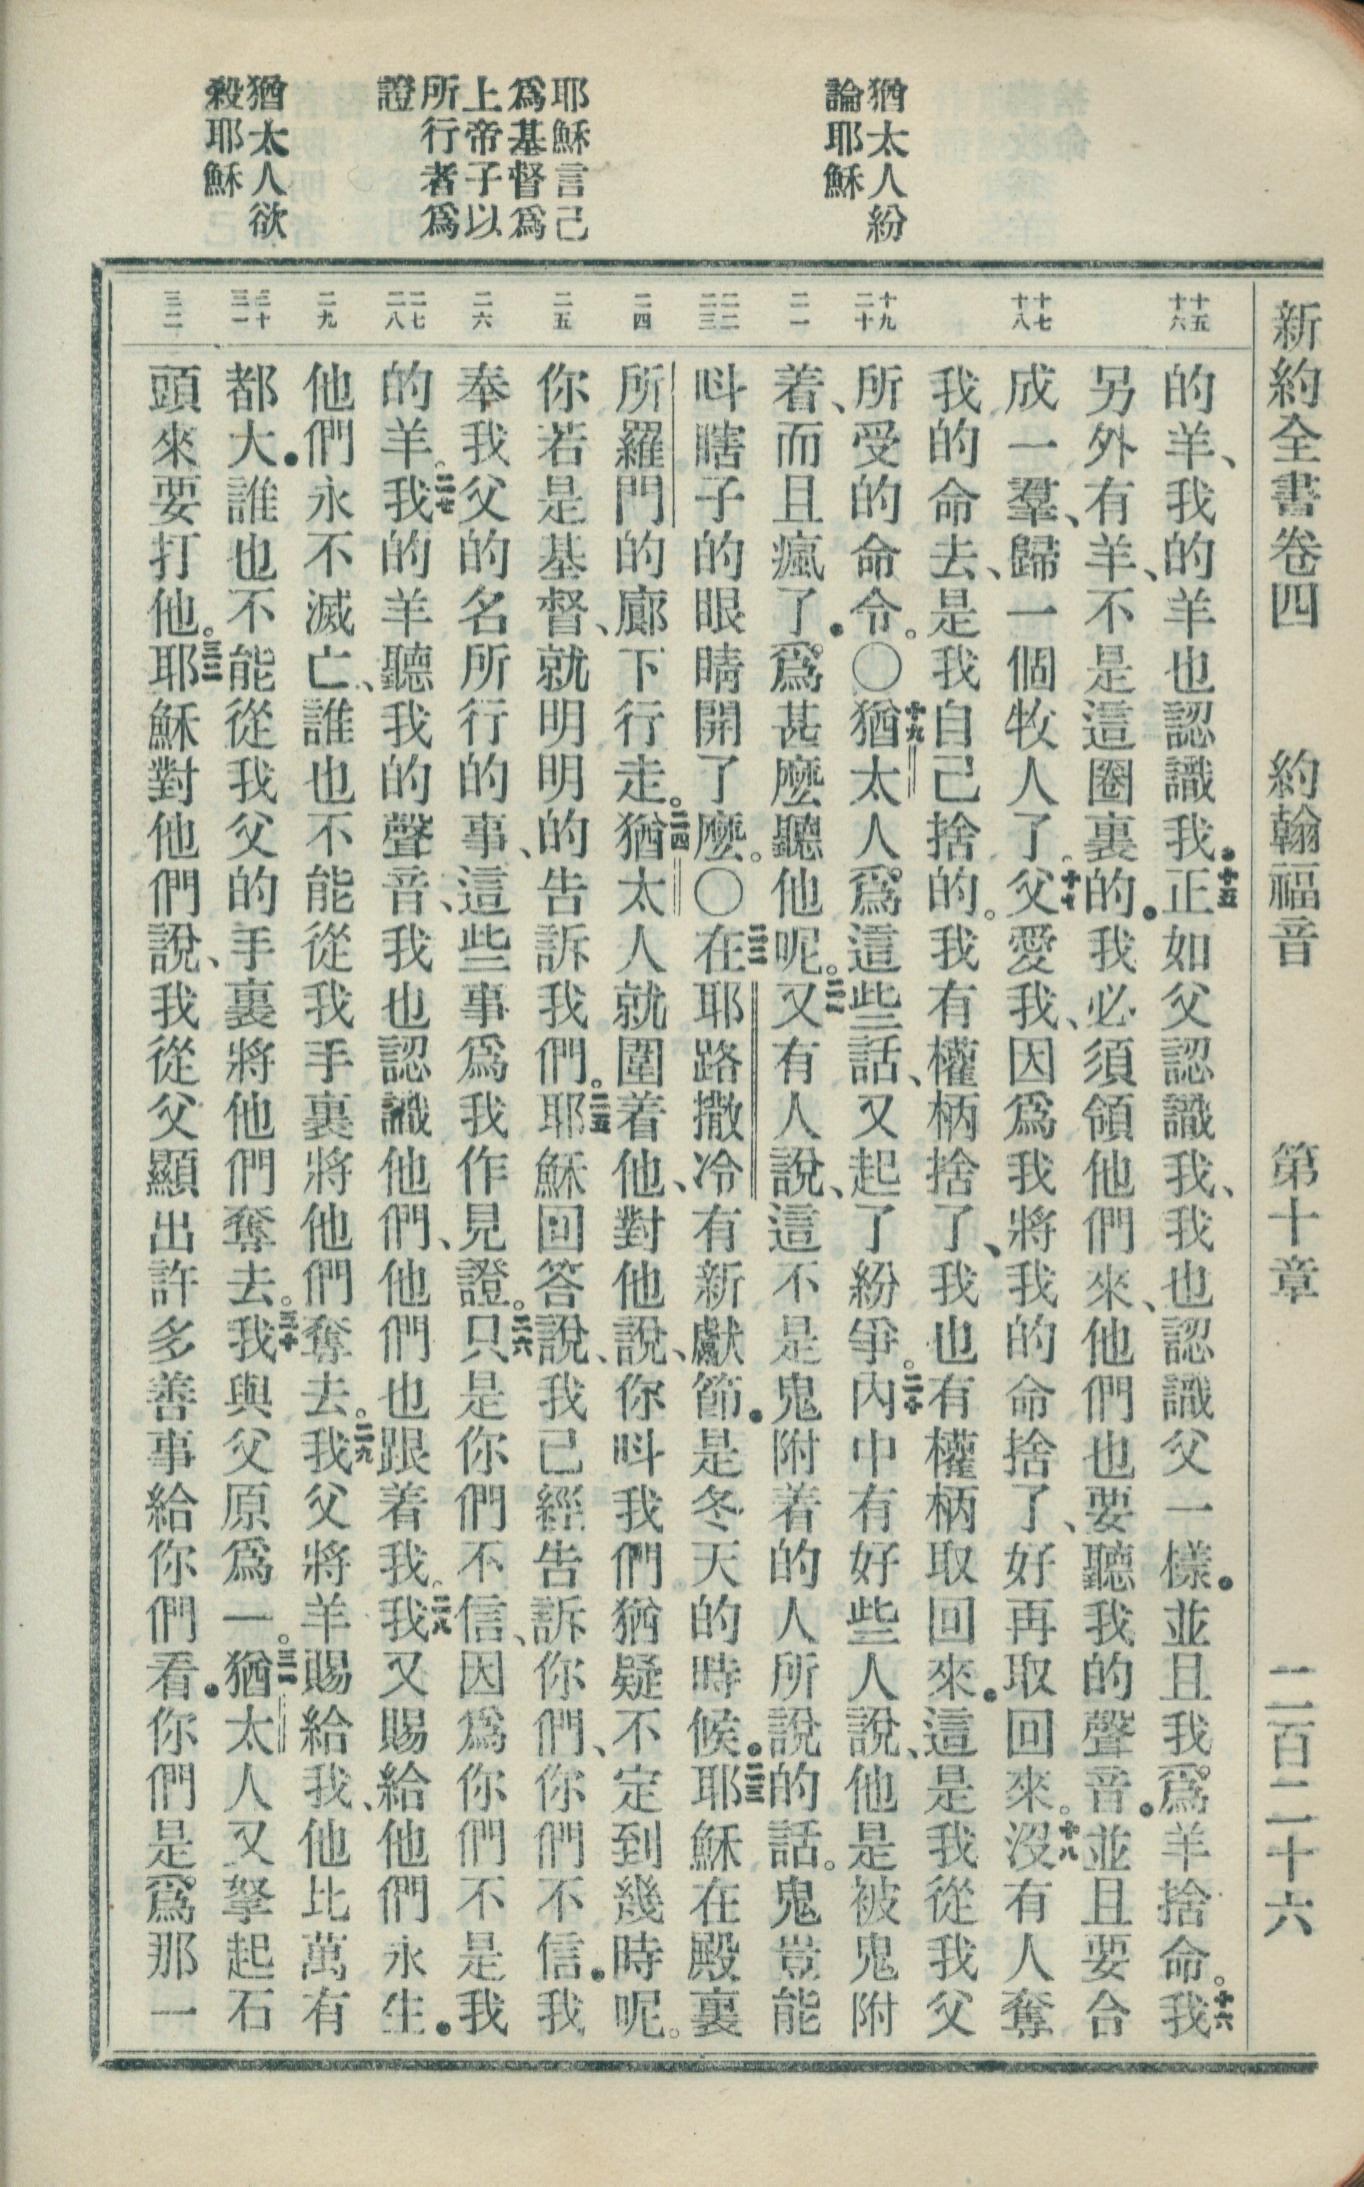 新約全書卷四　約翰福音　第十章　二百二十六
猶太人紛
論耶穌
耶穌言己
爲基督爲
上帝子以
所行者爲
證
猶太人欲
殺耶穌
十五
十六
十七
十八
十九
二十
二一
二二
二三
二四
二五
二六
二七
二八
二九
三十
三一
三二
的羊、我的羊也認識我．十五正如父認識我、我也認識父一樣．並且我爲羊捨命。十六我
另外有羊、不是這圈裏的．我必須領他們來、他們也要聽我的聲音．並且要合
成一羣、歸一個牧人了。十七父愛我、因爲我將我的命捨了、好再取回來。十八沒有人奪
我的命去、是我自己捨的。我有權柄捨了、我也有權柄取回來．這是我從我父
所受的命令。〇十九猶太人爲這些話、又起了紛爭。二十內中有好些人說、他是被鬼附
着、而且瘋了．爲甚麼聽他呢。二一又有人說、這不是鬼附着的人所說的話。鬼豈能
呌瞎子的眼睛開了麼。〇二二在耶路撒冷有新獻節．是冬天的時候．二三耶穌在殿裏
所羅門的廊下行走。二四猶太人就圍着他、對他說、你呌我們猶疑不定到幾時呢。
你若是基督、就明明的告訴我們。二五耶穌回答說、我已經告訴你們、你們不信．我
奉我父的名所行的事、這些事爲我作見證。二六只是你們不信、因爲你們不是我
的羊。二七我的羊聽我的聲音、我也認識他們、他們也跟着我。二八我又賜給他們永生．
他們永不滅亡、誰也不能從我手裏將他們奪去。二九我父將羊賜給我、他比萬有
都大．誰也不能從我父的手裏將他們奪去。三十我與父原爲一。三一猶太人又拏起石
頭來要打他。三二耶穌對他們說、我從父顯出許多善事給你們看．你們是爲那一